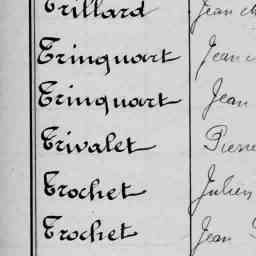 Trillard Jean
Trinquart Jean
Trinquart Jean
Trivalet Pierre
Trochet Julien
Trochet Jean